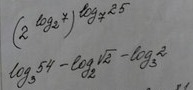 (2^{log_2 7})^{log_7 25}
log_3 54 - log_2 √2 - log_3 2